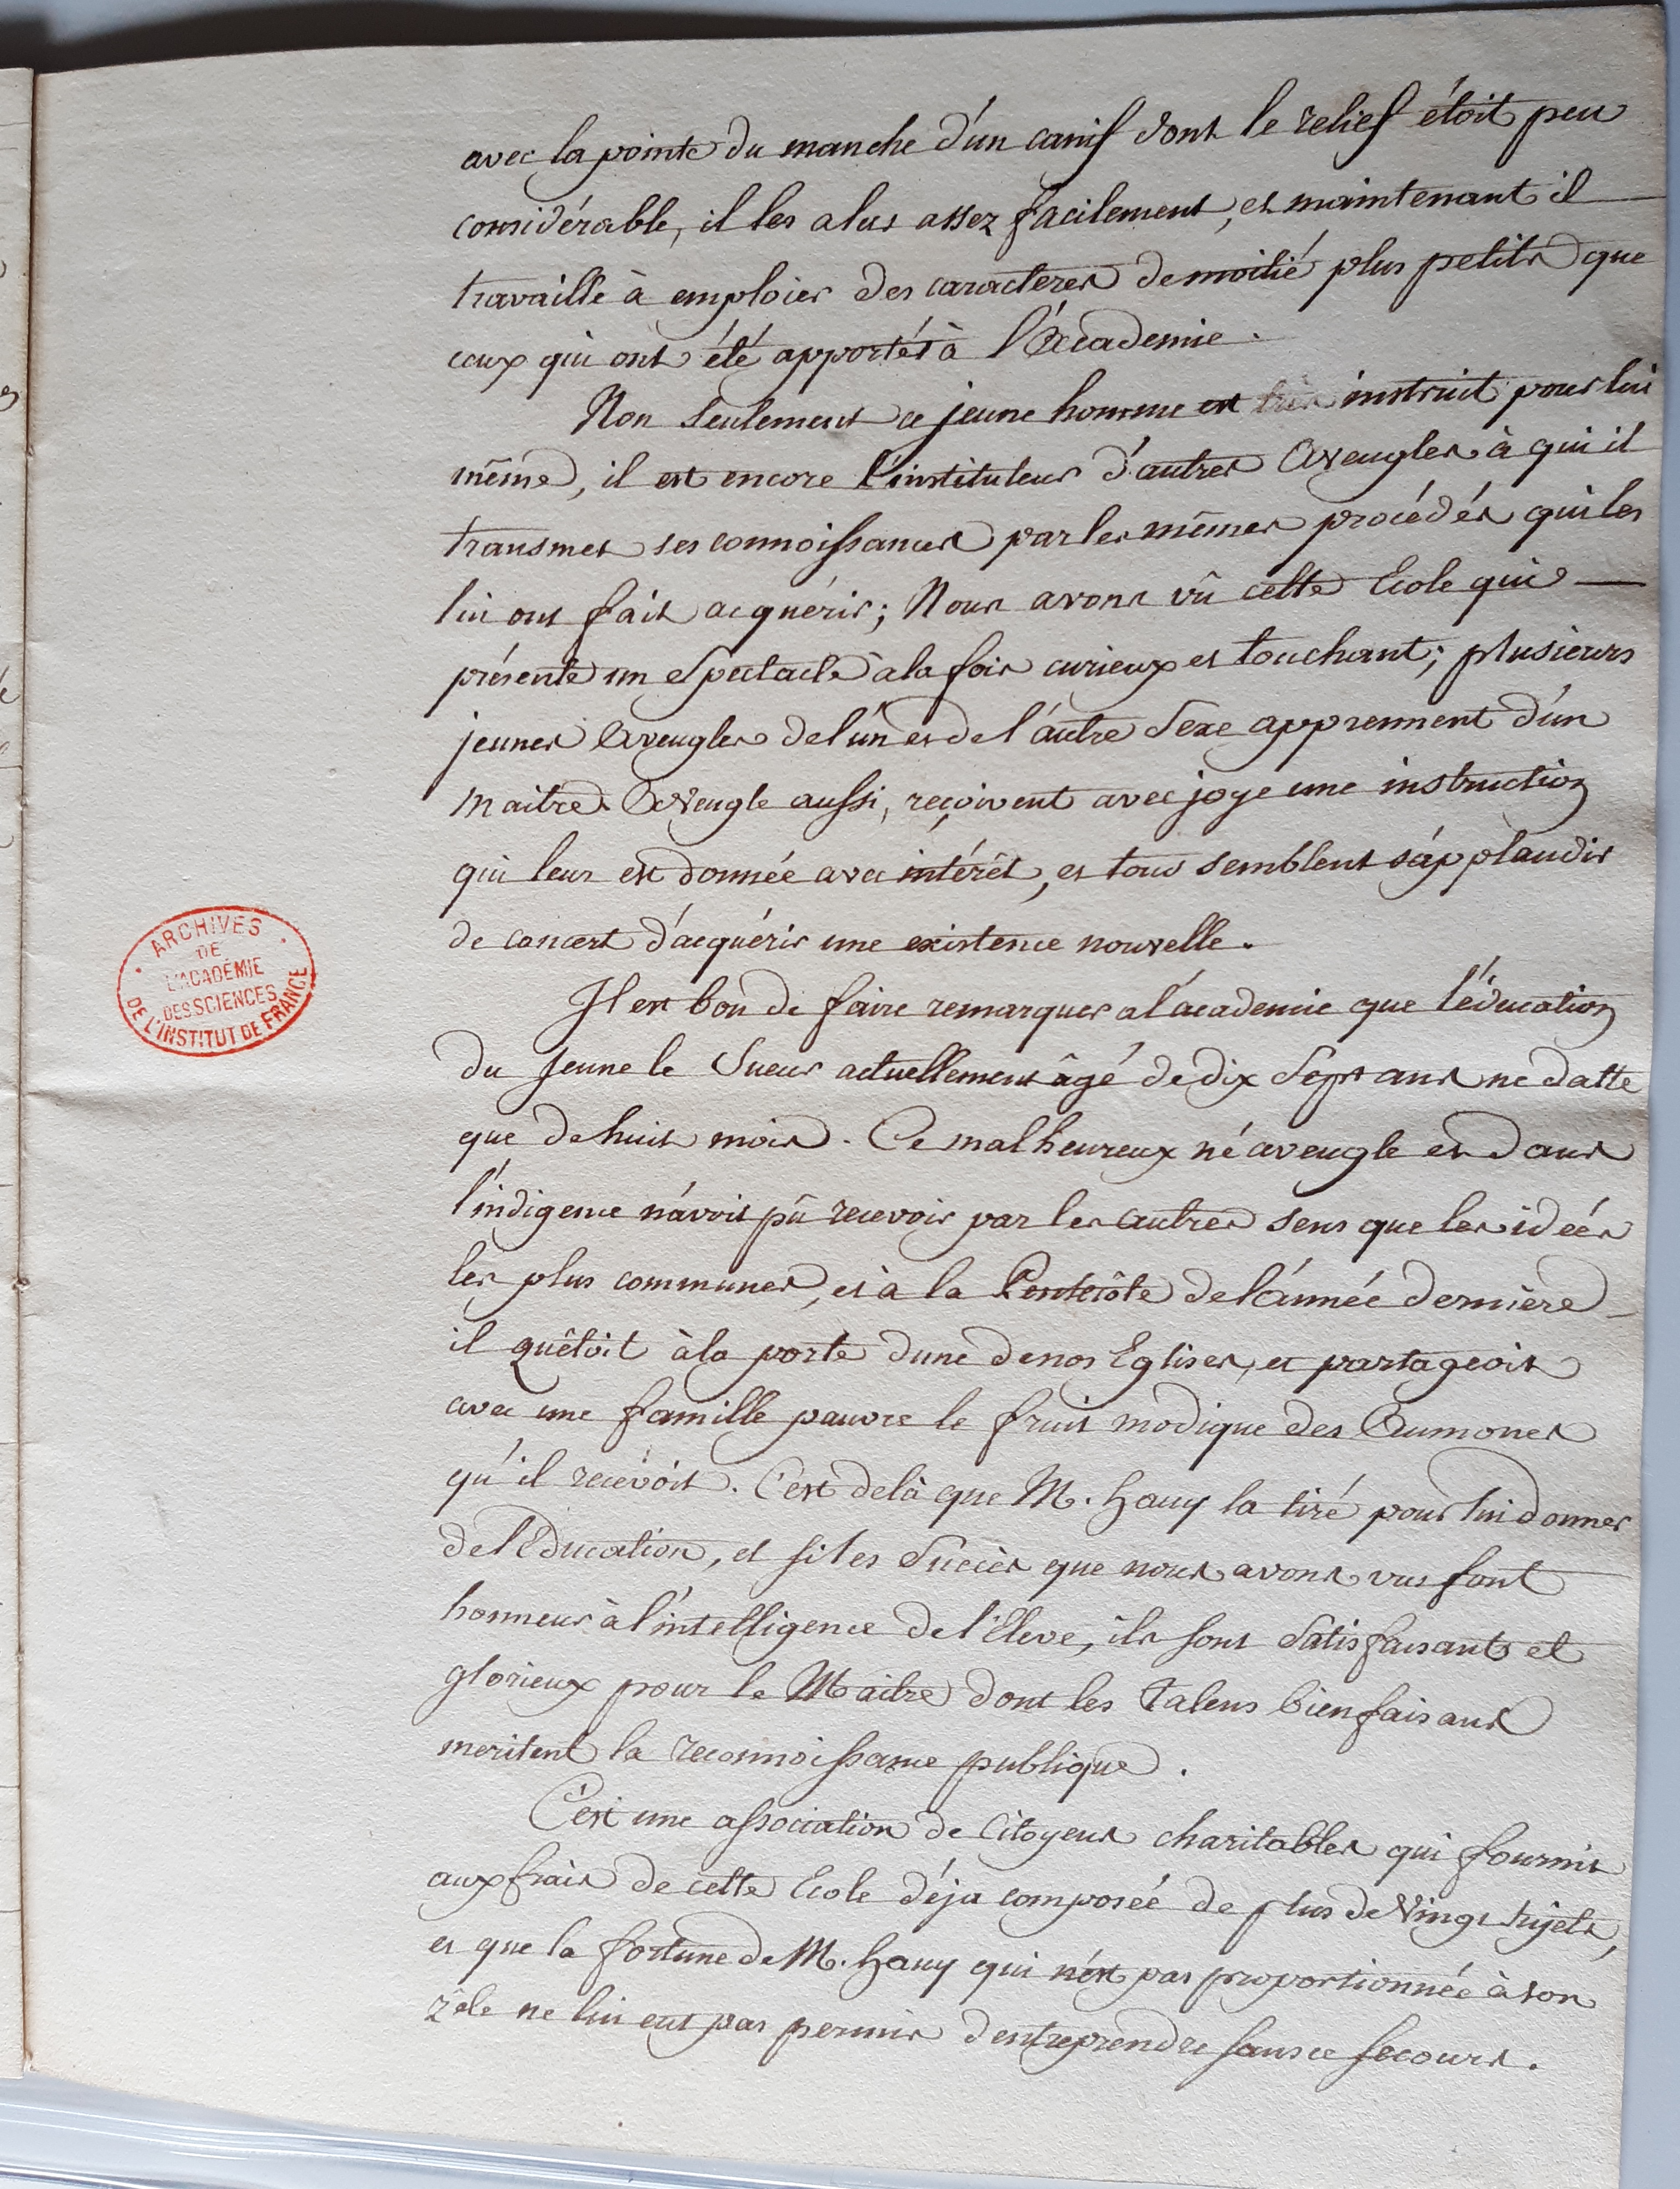 avec la pointe du manche d'un canif dont le relief étoit peu
considérable, il les a lus assez facilement, et maintenant il
travaille à emploier des caracteres de moitié plus petits que
ceux qui ont été apportés à l'Academie.
Non seulement ce jeune homme est très instruit pour lui
même, il est encore l'instituteur d'autres Aveugles à qui il
transmet ses connoissances par les mêmes procédés qui les
lui ont fait acquérir; Nous avons vû cette Ecole qui
présente un Spectacle à la fois curieux et touchant; plusieurs
jeunes Aveugles de l'un et de l'autre Sexe apprennent d'un
maitre Aveugle aussi, reçoivent avec joye une instruction
qui leur est donnée avec intérêt, et tous semblent s'applaudir
de concert d'acquérir une existence nouvelle.
ARCHIVES
DE
L'ACADÉMIE
DES SCIENCES
DE L'INSTITUT DE FRANCE
Il est bon de faire remarquer a l'academie que l'éducation
du Jeune le Sueur actuellement âgé de dix Sept ans ne datte
que de huit mois. Ce malheureux né aveugle et dans
l'indigence n'avoit pû recevoir par les autres sens que les idées
les plus communes, et à la Pentecôte de l'année derniere
il quêtoit à la porte d'une de nos Eglises, et partageoit
avec une famille pauvre le fruit modique des Aumones
qu'il recevoit. C'est delà que M. hauy la tiré pour lui donner
de l'Education, et si les Succès que nous avons vus font
honneur à l'intelligence de l'Eleve, ils sont Satisfaisants et
glorieux pour le Maitre dont les Talens bienfaisans
meritent la reconnoissance publique.
C'est une association de Citoyens charitables qui fournit
aux frais de cette Ecole déja composée de plus de Vingt sujets,
et que la fortune de M. hauy qui n'est pas proportionnée à son
zêle ne lui eut pas permis d'entreprendre sans ce secours.